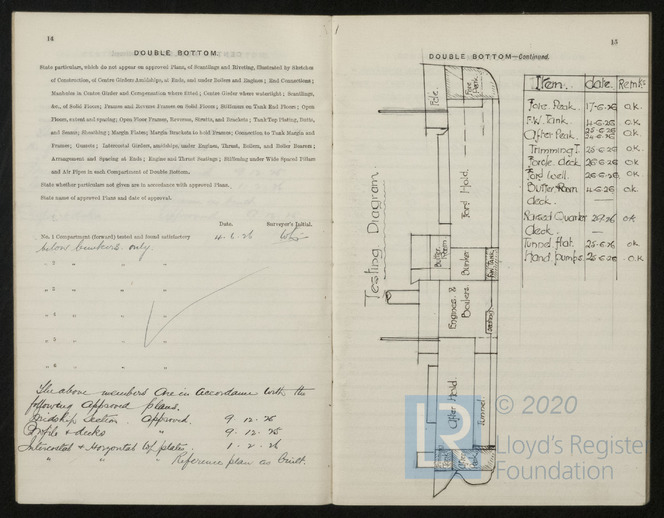 14
DOUBLE BOTTOM
State particulars, which do not appear on approved Plans, of Scantlings and Riveting, illustrated by Sketches
of Construction, of Centre Girders Amidships, at Ends, and under Boilers and Engines; End Connections;
Manholes in Centre Girder and Compensation where fitted; Centre Girders where watertight; Scantlings,
&c., of Solid Floors; Frames and Reverse Frames on Solid Floors; Stiffeners on Tank End Floors; Open
Floors, extent and spacing; Open Floor Frames, Reverses, Struts, and Brackets; Tank Top Plating, Butts,
and Seams; Sheathing; Margin Plates; Margin Brackets to hold Frames; Connection to Tank Margin and
Frames; Gussets; Intercostal Girders, amidships, under Engines, Thrust, Boilers, and Boiler Bearers;
Arrangement and Spacing at Ends; Engine and Thrust Seatings; Stiffening under Wide Spaced Pillars
and Air Pipes in each Compartment of Double Bottom.
State whether particulars not given are in accordance with approved Plan.
State name of approved Plans and date of approval.
Date. Surveyor's Initial.
No. 1 Compartment (forward) tested and found satisfactory 4.6.26
below bunkers only
„ 2 „ „
„ 3 „ „
„ 4 „ „
„ 5 „ „
„ 6 „ „
The above members are in accordance with the
following approved plans.
Midship Section. Approved. 9.12.25
Profile & decks „ 9.12.25
Intercostal & Horizontal W/ plates „ 1.2.26
„ „ Reference plan as built.
15
DOUBLE BOTTOM—Continued.
Testing Diagram.
Pole.
Fore Peak.
Ford Hold.
Butter Room
Bunker
F.W. Tank
Engines & Boilers.
After Hold.
Tunnel
Item. date. Remks
Fore Peak 17-6-26 O.K.
F.W. Tank. 4-6-26 O.K.
After Peak 25-6-26 O.K.
Trimming T 25-6-26 O.K.
Forcle deck 26-6-26 O.K.
Ford Well. 26-6-26 O.K.
Butter Room 4-6-26 O.K.
deck. —
Raised Quarter ok
deck. —
Tunnel flat. 25-6-26 ok
Hand pumps. 26-6-26 O.K.
LR
© 2020
Lloyd's Register
Foundation